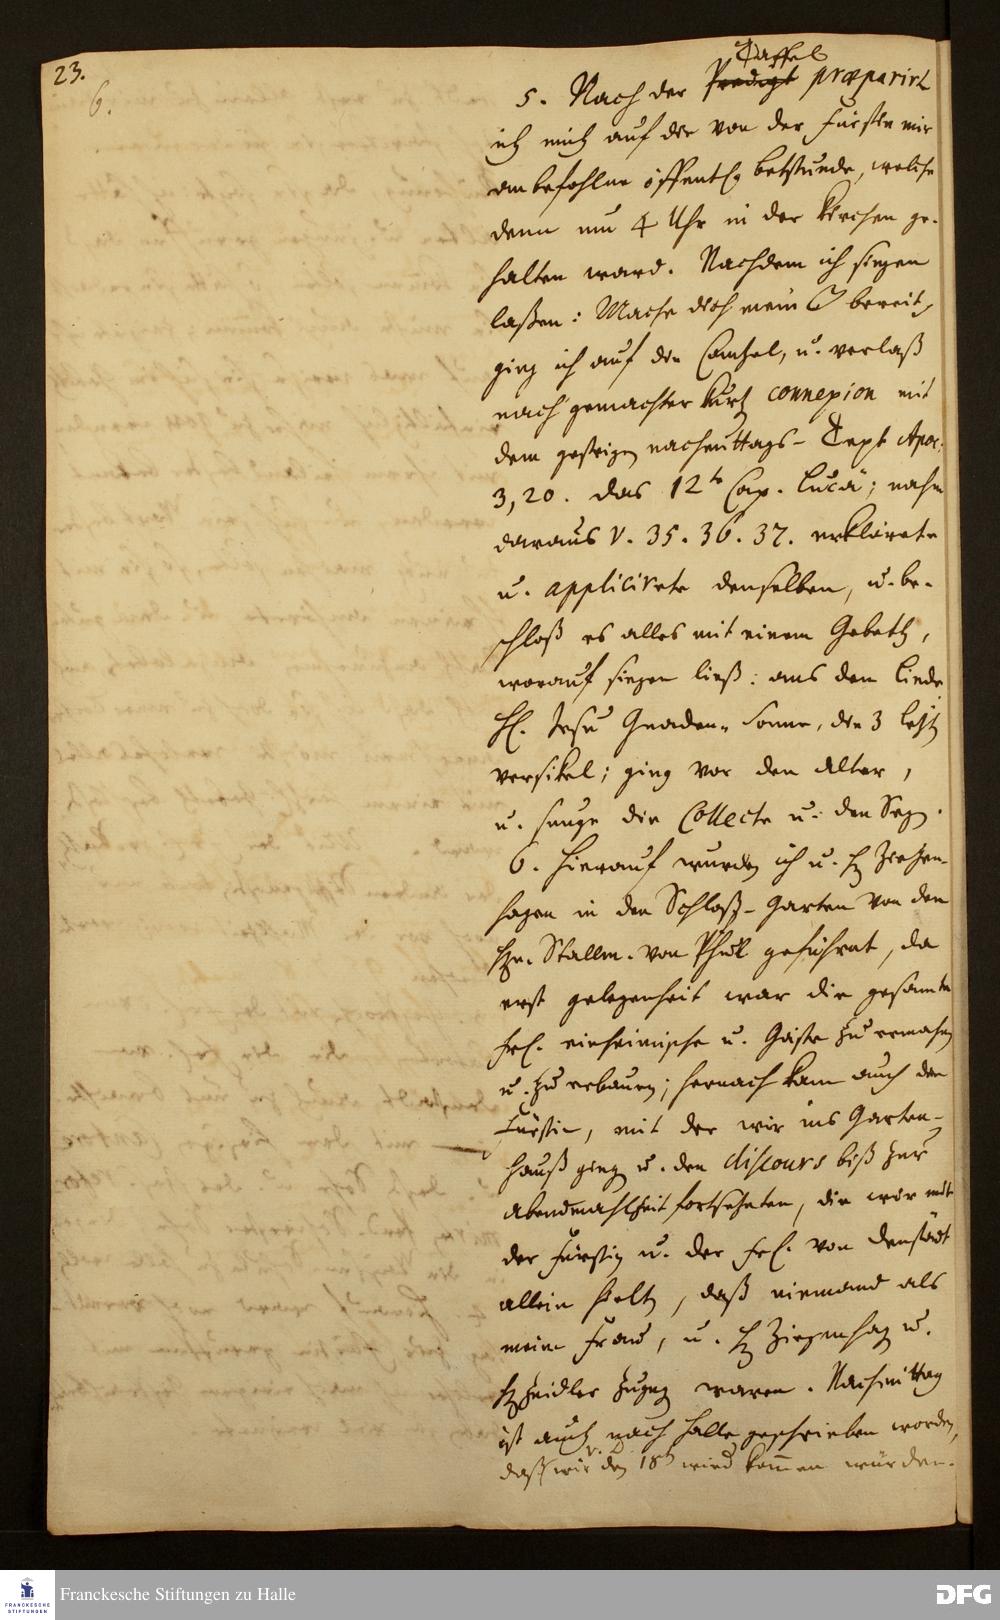 23.
6.
Taffel
5. Nach der Predigt præparirt
ich mich auf die von der Fürstin mir
anbefohlne öffentl. betstunde, welche
denn um 4 Uhr in der Kirchen ge-
halten ward. Nachdem ich singen
laßen: Mache dich mein bereit,
ging ich auf die Cantzel, u. verlaß
nach gemachter kurtz connexion mit
dem gestrigen nachmittags-Text Apoc:
3, 20. das 12te Cap. Lucä; nahm
daraus v. 35. 36. 37. erklärete
u. applicirete denselben, u. be-
schloß es alles mit einem Gebeth,
worauf singen ließ: aus dem Liede
H. Jesu Gnaden-Sonne, die 3 letzt
versikel; ging vor den Altar,
u. sunge die Collecte u. den Segen.
6. Hierauf wurden ich u. H.
hagen in den Schloß-Garten von dem
Hn. Stallm. von geführet, da
erst gelegenheit war die gesamte
Frl. einheimische u. Gäste zu ermahnen
u. zu erbauen; hernach kam auch die
Fürstin, mit der wir ins Garten-
hauß ging u. den discours biß zur
abendmahlzeit fortsetzten, die wir mit
der Fürstin u. der Frl. von Denstädt
allein hielten, daß niemand als
meine Frau, u. H. Ziegenhag u.
H. Zeidler zugeg waren. Nachmittag
ist auch nach Halle geschrieben worden,
daß wir v. D. den 18ten wird kommen würden.
Franckesche Stiftungen zu Halle
FRANCKESCHE
STIFTUNGEN
DFG